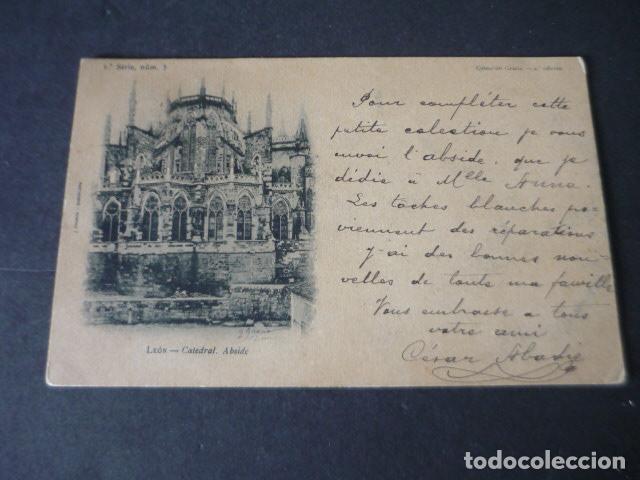 1.ª Série, núm. 3
Pour compléter cette
petite colection je vous
envoi l'abside, que je
dédie à Mlle Anna.
Les taches blanches pro-
viennent des réparations
j'ai des bonnes nou-
velles de toute ma famille
Vous embrasse a tous
votre ami
César Abadie
LEÓN — Catedral. Abside
todocoleccion.net